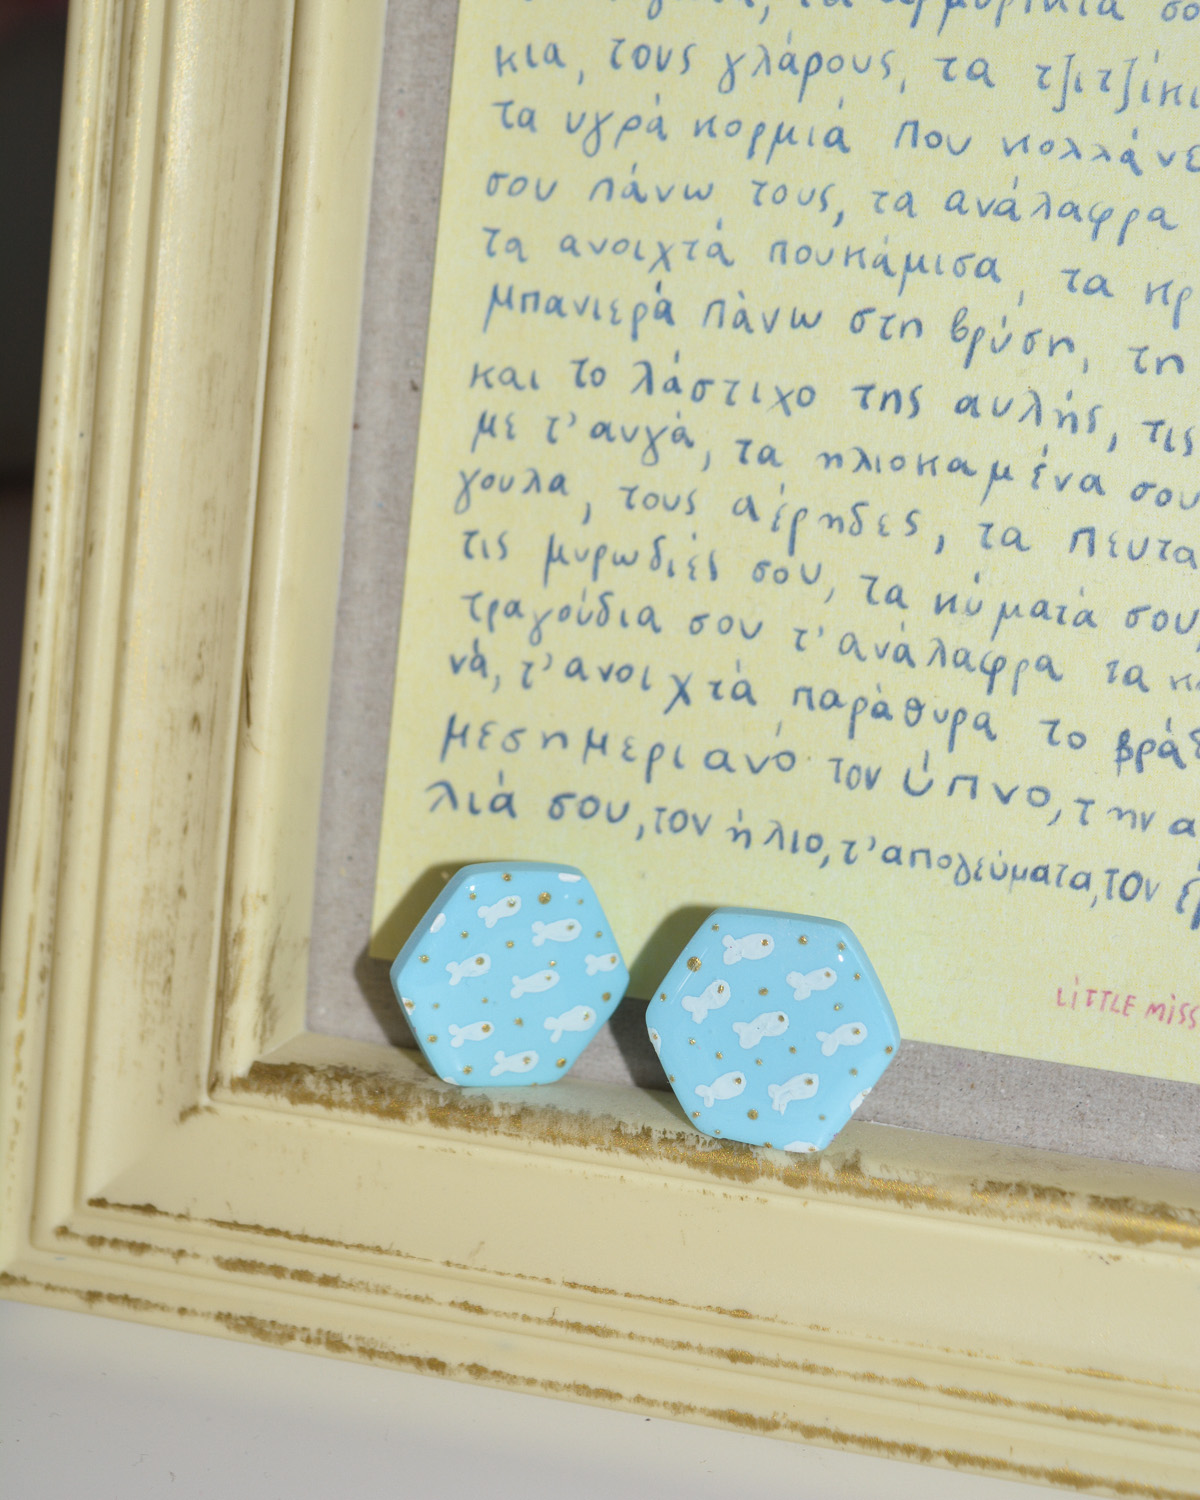 κια, τους γλάρους, τα
τα υγρά κορμιά που κολλάνε
σου πάνω τους, τα ανάλαφρα
τα ανοιχτά πουκάμισα, τα
μπανιερά πάνω στη βρύση, τη
και το λάστιχο της αυλής, τις
με τ' αυγά, τα ηλιοκαμένα σου
γουλα, τους αέρηδες, τα
τις μυρωδιές σου, τα κύματά σου,
τραγούδια σου τ' ανάλαφρα τα
νά, τ' ανοιχτά παράθυρα το
μεσημεριανό τον ύπνο, την
λιά σου, τον ήλιο, τ' απογεύματα, τον
LiTTLE MiSS